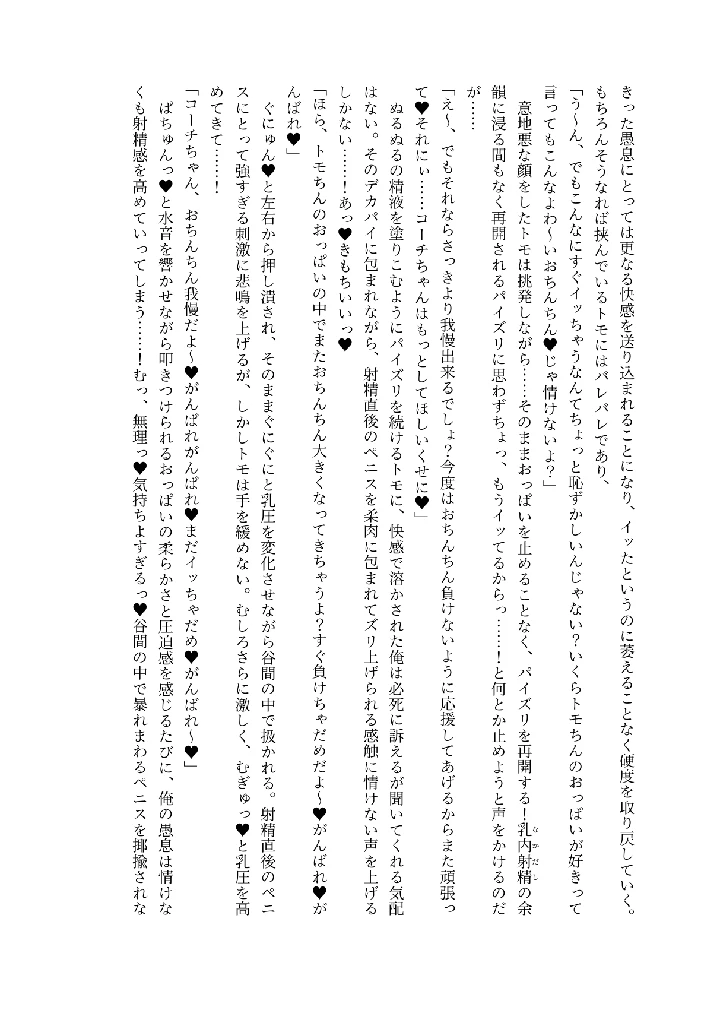 きった愚息にとっては更なる快感を送り込まれることになり、イッたというのに萎えることなく硬度を取り戻していく。
もちろんそうなれば挟んでいるトモにはバレバレであり、
「う～ん、でもこんなにすぐイッちゃうなんてちょっと恥ずかしいんじゃない？いくらトモちんのおっぱいが好きって
言ってもこんなよわ～いおちんちん♥じゃ情けないよ？」
意地悪な顔をしたトモは挑発しながら……そのままおっぱいを止めることなく、パイズリを再開する！乳内射精の余
なかだし
韻に浸る間もなく再開されるパイズリに思わずちょっ、もうイッてるからっ……！と何とか止めようと声をかけるのだ
が……
「え～、でもそれならさっきより我慢出来るでしょ？今度はおちんちん負けないように応援してあげるからまた頑張っ
て♥それにぃ……コーチちゃんはもっとしてほしいくせに♥」
ぬるぬるの精液を塗りこむようにパイズリを続けるトモに、快感で溶かされた俺は必死に訴えるが聞いてくれる気配
はない。そのデカパイに包まれながら、射精直後のペニスを柔肉に包まれてズリ上げられる感触に情けない声を上げる
しかない……！あっ♥きもちいいっ♥
「ほら、トモちんのおっぱいの中でまたおちんちん大きくなってきちゃうよ？すぐ負けちゃだめだよ～♥がんばれ♥が
んばれ♥」
ぐにゅん♥と左右から押し潰され、そのままぐにぐにと乳圧を変化させながら谷間の中で扱かれる。射精直後のペニ
スにとって強すぎる刺激に悲鳴を上げるが、しかしトモは手を緩めない。むしろさらに激しく、むぎゅっ♥と乳圧を高
めてきて……！
「コーチちゃん、おちんちん我慢だよ～♥がんばれがんばれ♥まだイッちゃだめ♥がんばれ～♥」
ぱちゅんっ♥と水音を響かせながら叩きつけられるおっぱいの柔らかさと圧迫感を感じるたびに、俺の愚息は情けな
くも射精感を高めていってしまう……！むっ、無理っ♥気持ちよすぎるっ♥谷間の中で暴れまわるペニスを揶揄されな